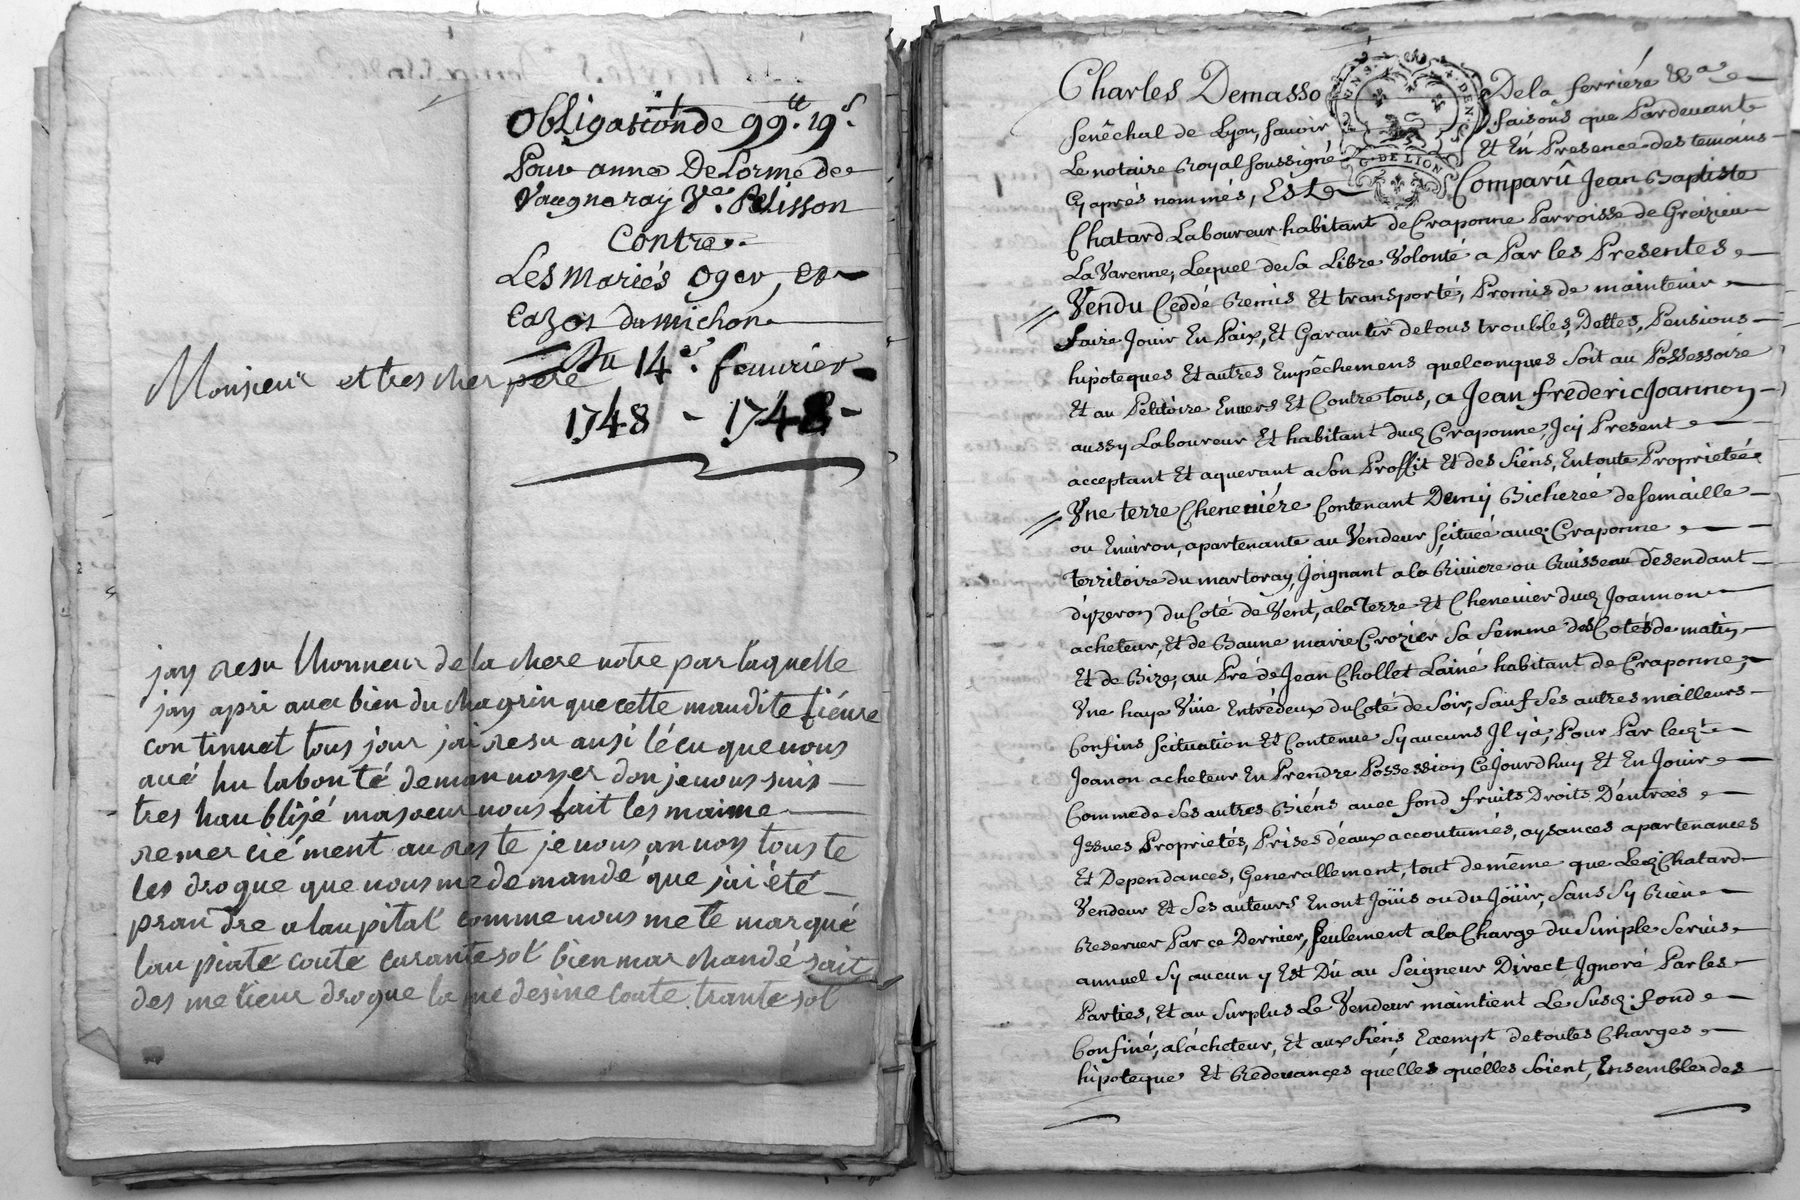 Obligation de 99.tt 19.s
Pour anne DeLorme de
Vaugneray V.e Pelisson
Contre
Les Mariés Oger, Et
Cazot du michon
Du 14.e feuvrier
1748 - 1748 -
Monsieur et tres cher pere
jay resu lhonneur de la chere notre par laquelle
jay apri auec bien du chagrin que cette maudite fiéure
continuet tous jour jai resu ausi lécu que uous
aué hu labonté deman uoyer don je uous suis
tres haublijé masoeur uous fait les maime
remerciément au reste je uous an uoy touste
les drogue que uous me demandé que jai été
prandre a laupital comme uous me te marqué
lau piate coute carante sol bien marchandé sait
des melieur drogue la medesine coute trante sol
Charles Demasso De la ferriére
Sénéchal de Lyon, sauoir faisons que Pardeuant
Le notaire Royal soussigné Et En Presence des temoins
Cy aprés nommés, Est Comparû Jean Baptiste
Chatard Laboureur habitant de Craponne Parroisse de Grézieu
La Varenne, Lequel de sa Libre Volonté a Par les Presentes
Vendu Ceddé Remis Et transporté, Promis de maintenir
faire Jouir En Paix, Et Garantir de tous troubles, Dettes, Pensions
hipoteques Et autres Empêchemens quelconques soit au Possessoire
Et au Petitoire Enuers Et Contre tous, a Jean frederic Joannon
aussy Laboureur Et habitant dud Craponne, Icy Present
acceptant Et aquerant a son Proffit Et des siéns, En toute Proprietéé
Vne terre Cheneuiére Contenant Demy Bicheréé de semaille
ou Enuiron, apartenante au Vendeur scituéé aud Craponne
territoire du martoray, Joignant a la Riuiere ou Ruisseau désendant
d'yzeron du Coté de Vent, a la Terre Et Cheneuier dud Joannon
acheteur, Et de Baune marie Crozier sa femme des Cotés de matin
Et de Bize, au Pré de Jean Chollet Lainé habitant de Craponne,
Vne haye Viue Entrédeux du Coté de Soir, Sauf ses autres meilleurs
Confins scituation Et Contenue sy aucuns Il y à, Pour Par led.t
Joanon acheteur En Prendre Possession Céjourdhuy Et En Jouir
Comme de ses autres Biéns auec fond fruits Droits D'entrées
Issues Proprietés, Prises déaux accoutumés, aysances apartenances
Et Dependances, Generallement, tout de même que Led Chatard
Vendeur Et ses auteurs En ont Joüis ou du Joüir, sans sy Rien
Reseruer Par ce Dernier, seulement a la Charge du simple Seruis
annuel sy aucun y Est Dû au Seigneur Direct Ignoré Par les
Parties, Et au surplus Le Vendeur maintient Le susd. fond
Confiné, a l'ácheteur, Et aux siéns Exempt de toutes Charges
hipoteque Et Redeuançes quélles quélles soient, Ensemble des